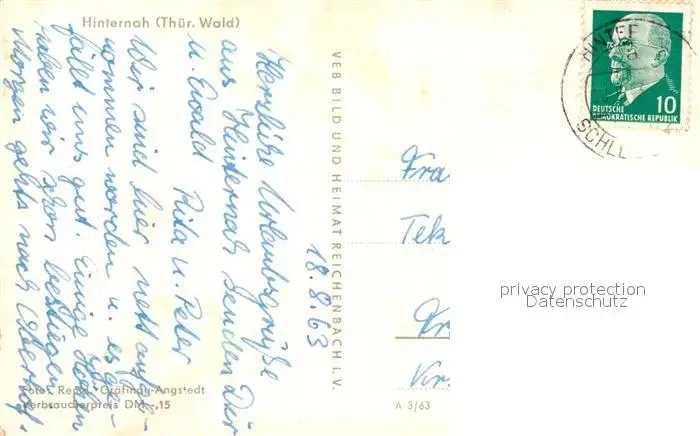 Hinternah (Thür. Wald)
18.8.63
Herzliche Urlaubsgrüße
aus Hinternah senden Dir
u. Ewald Rita u. Peter
Wir sind hier nett aufge-
nommen worden u. es ge-
fällt uns gut. Einige Höhen
haben wir schon bestiegen.
Morgen gehts nach Oberhof.
Foto: Gräfinau-Angstedt
Verbraucherpreis DM -,15
VEB BILD UND HEIMAT REICHENBACH I. V.
A 3/63
Fra
Tek
Kr
Kir
10
DEUTSCHE
DEMOKRATISCHE REPUBLIK
HINTE
SCHLE
privacy protection
Datenschutz